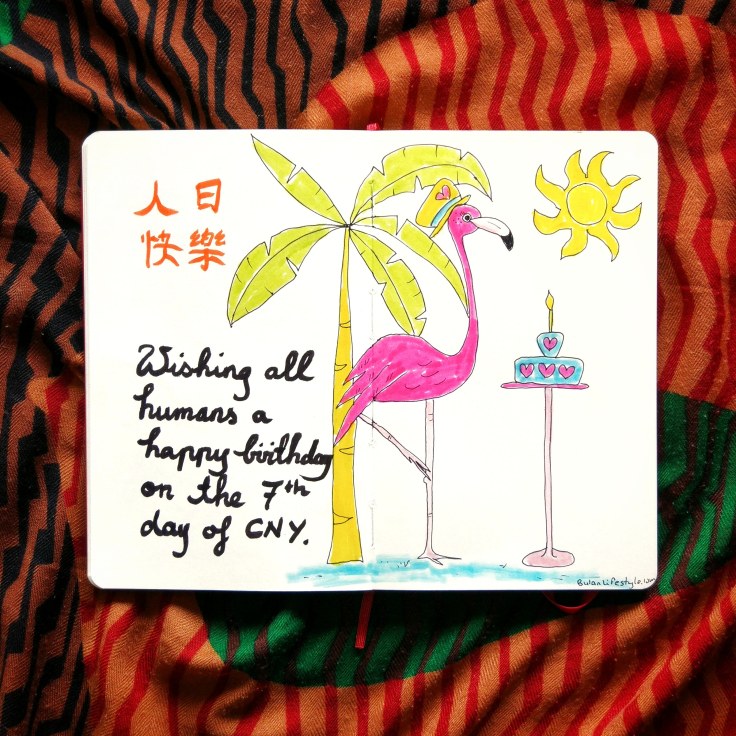 人日
快樂
Wishing all
humans a
happy birthday
on the 7th
day of CNY.
BulanLifestyle.com